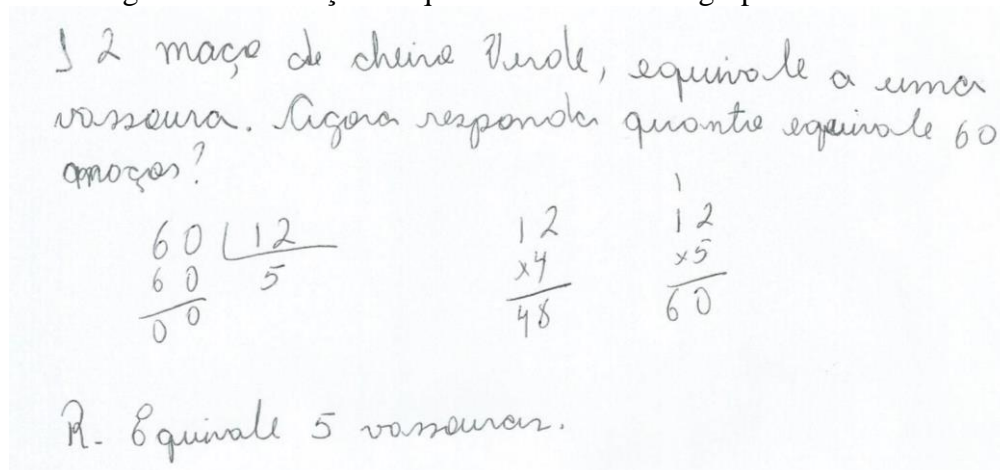 12 maço de cheiro Verde, equivale a uma
vassoura. Agora responda quanto equivale 60
maços?
60 12
60 5
00
12
x4
48
1
12
x5
60
R- Equivale 5 vassouras.